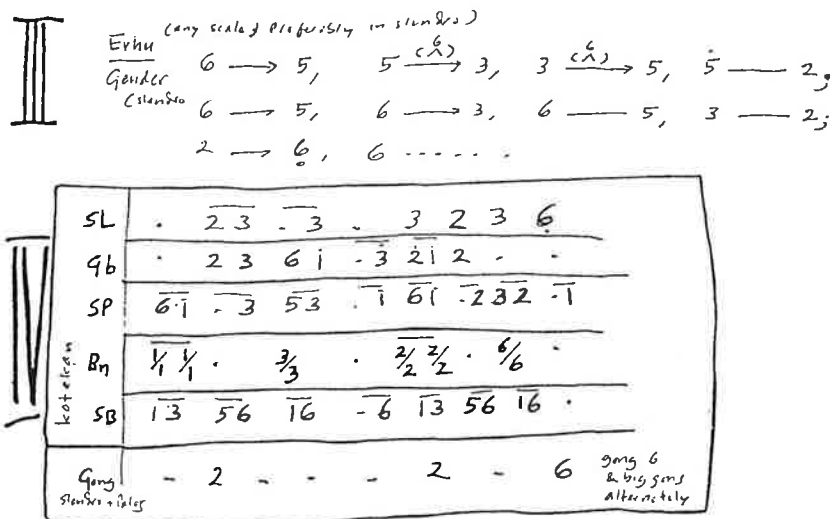 III
Erhu (any scale & preferibly in slendro)
Gender 6 → 5, 5 (6/^) → 3, 3 (6/^) → 5, 5̇ — 2;
(slendro
6 → 5, 6 → 3, 6 — 5, 3 — 2;
2 → 6̣, 6 . . . . . .
IV
kotekan
SL . 2̅3̅ .̅3̅ . 3 2 3 6̣
Gb . 2 3 6 i -̅3̅ 2̅i̅ 2 . .
SP 6̅·̅1̅ .̅ ̅3̅ 5̅3̅ .̅ ̅1̅ 6̅1̅ .̅2̅3̅2̅ .̅1̅
Bn 1/1 1/1 . 3/3 . 2/2 2/2 . 6/6 .
SB 1̅3̅ 5̅6̅ 1̅6̅ -̅6̅ 1̅3̅ 5̅6̅ 1̅6̅ .
Gong - 2 - - - 2 - 6 gong 6
slendro + pelog & big gong
alternately